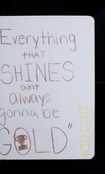 Everything
THAT
SHINES
ain't
always
gonna be
GOLD"